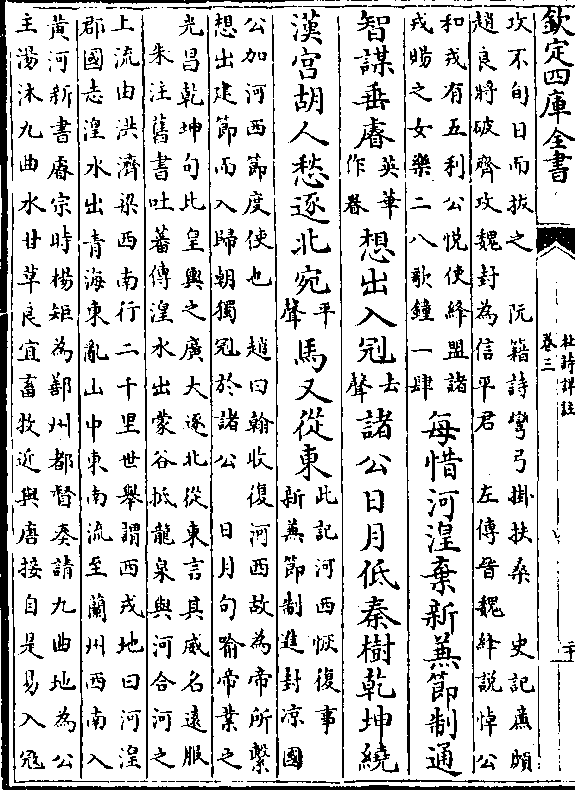 欽定四庫全書
杜詩詳註
卷三
二十
攻不旬日而拔之 阮籍詩彎弓掛扶桑 史記廉頗
趙良將破齊攻魏封為信平君 左傳晉魏絳說悼公
和戎有五利公悅使絳盟諸
戎賜之女樂二八歌鐘一肆
每惜河湟棄新兼節制通
智謀垂睿英華作眷想出入冠去聲諸公日月低秦樹乾坤繞
漢宮胡人愁逐北宛平聲馬又從東此記河西恢復事
新兼節制進封凉國
公加河西節度使也 趙曰翰收復河西故為帝所繫
想出建節而入歸朝獨冠於諸公 日月句喻帝業之
光昌乾坤句比皇輿之廣大逐北從東言其威名遠服
朱注舊書吐蕃傳湟水出蒙谷抵龍泉與河合河之
上流由洪濟梁西南行二千里世舉謂西戎地曰河湟
郡國志湟水出青海東亂山中東南流至蘭州西南入
黃河新書睿宗時楊矩為鄯州都督奏請九曲地為公
主湯沐九曲水甘草良宜畜牧近與唐接自是易入寇